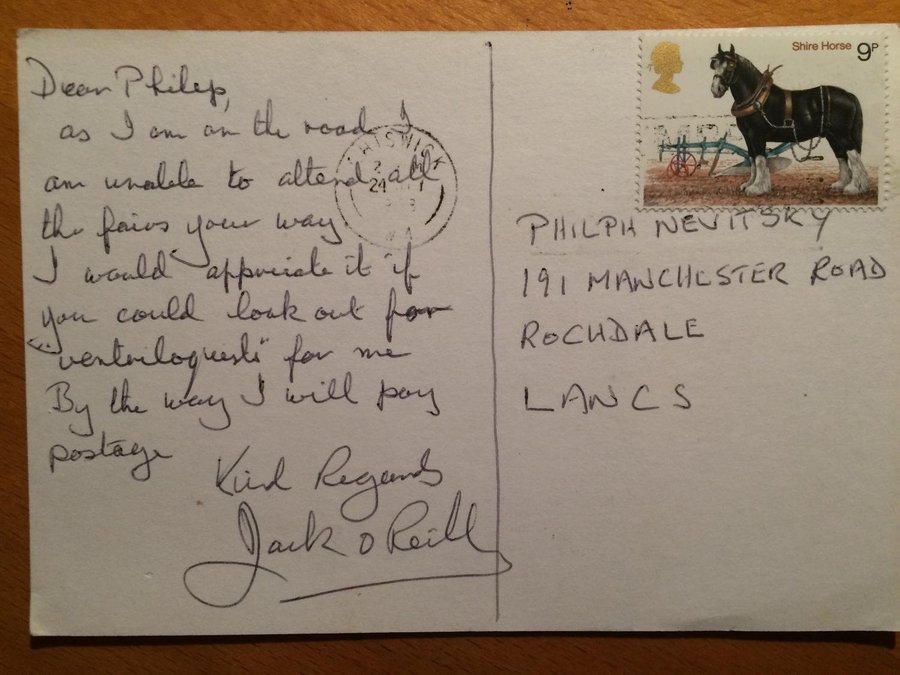 Dear Philip,
as I am on the road I
am unable to attend all
the fairs your way
I would appriciate it if
you could look out for
"ventriloquests" for me
By the way I will pay
postage
Kind Regards
Jack O Reilly
CHISWICK
W4
Shire Horse 9P
PHILPH NEVITSKY
191 MANCHESTER ROAD
ROCHDALE
LANCS